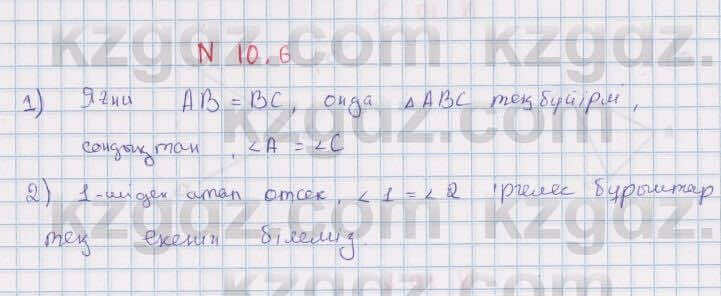 N 10.6
1) Яғни AB = BC, онда △ABC теңбүйірлі,
сондықтан, ∠A = ∠C
2) 1-шіден атап өтсек, ∠1 = ∠2 іргелес бұрыштар
тең екенін білеміз.
kzgdz.com
kzgdz.com
kzgdz.com
kzgdz.com
kzgdz.com
kzgdz.com